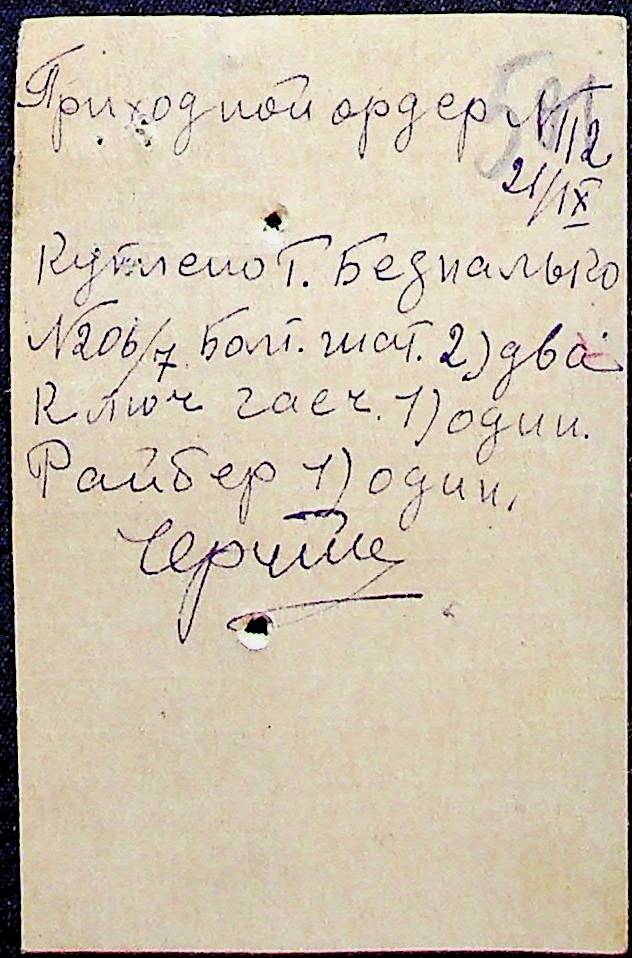 Приходной ордер №112
21/IX
Куплено Т. Беднялько
№206/7 Болт. шат. 2) два
Ключ гаеч. 1) один.
Райбер 1) один.